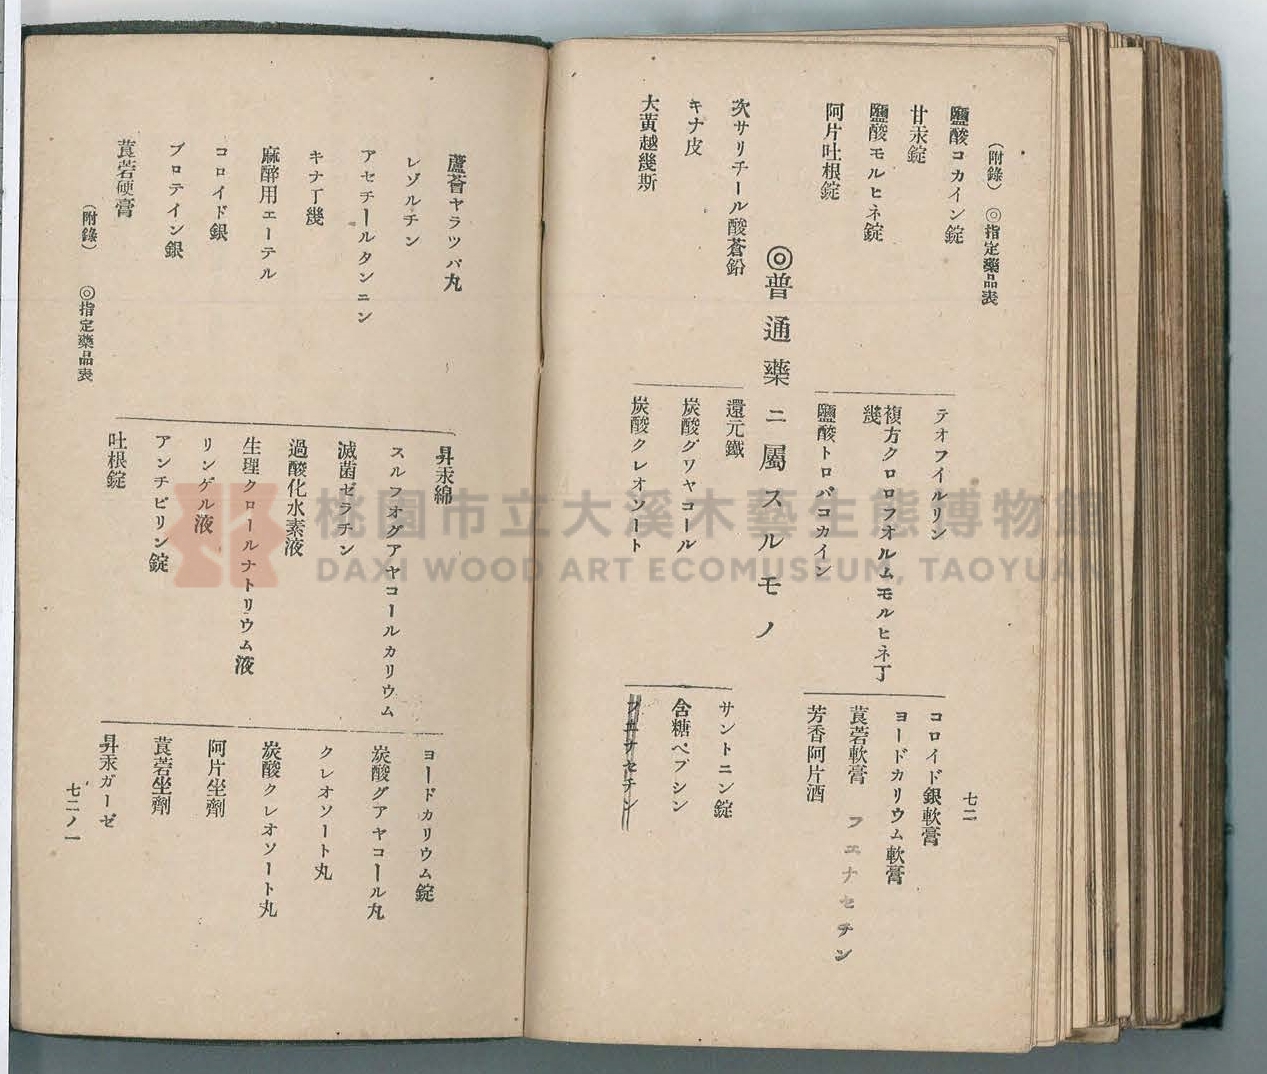 (附錄) ◎指定藥品表
七二
鹽酸コカイン錠
甘汞錠
鹽酸モルヒネ錠
阿片吐根錠
テオフイルリン
複方クロロフオルムモルヒネ丁
幾
鹽酸トロパコカイン
コロイド銀軟膏
ヨードカリウム軟膏
莨菪軟膏 フエナセチン
芳香阿片酒
◎普通藥ニ屬スルモノ
次サリチール酸蒼鉛
キナ皮
大黃越幾斯
還元鐵
炭酸グワヤコール
炭酸クレオソート
サントニン錠
含糖ペプシン
フエナセチン
蘆薈ヤラツパ丸
レゾルチン
アセチールタンニン
キナ丁幾
麻醉用エーテル
コロイド銀
プロテイン銀
莨菪硬膏
昇汞綿
スルフオグアヤコールカリウム
滅菌ゼラチン
過酸化水素液
生理クロールナトリウム液
リンゲル液
アンチピリン錠
吐根錠
ヨードカリウム錠
炭酸グアヤコール丸
クレオソート丸
炭酸クレオソート丸
阿片坐劑
莨菪坐劑
昇汞ガーゼ
(附錄) ◎指定藥品表
七二ノ一
桃園市立大溪木藝生態博物館
DAXI WOOD ART ECOMUSEUM, TAOYUAN